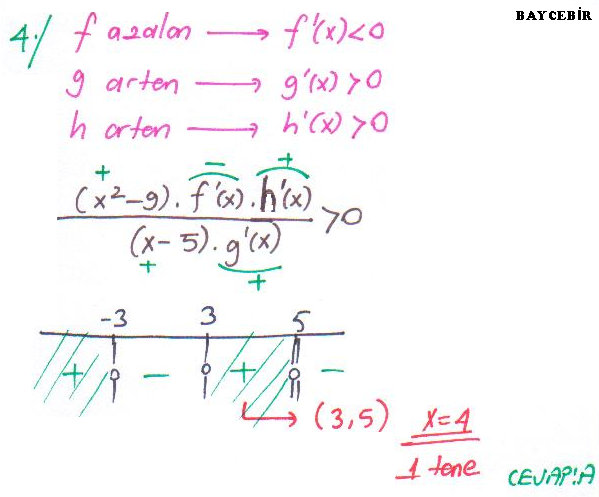 BAYCEBİR
4./ f azalan → f'(x)<0
g arten → g'(x)>0
h arten → h'(x)>0
+ − +
(x²-9).f'(x).h'(x)
>0
(x-5).g'(x)
+ +
-3 3 5
+ − + −
(3,5) x=4
1 tene
CEVAP:A